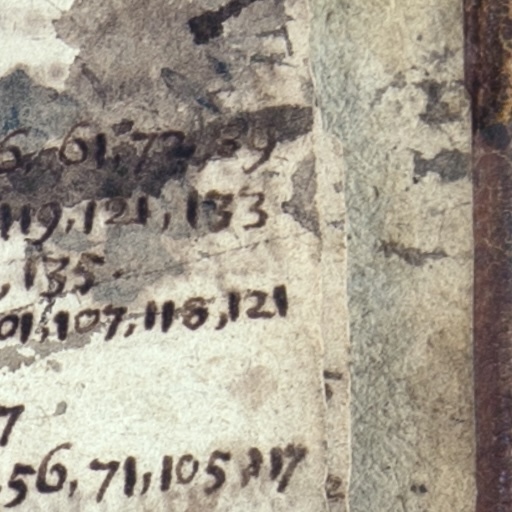 6, 61, 7 , 89
119, 121, 133
, 135
01, 107, 118, 121
7
56, 71, 105, 117